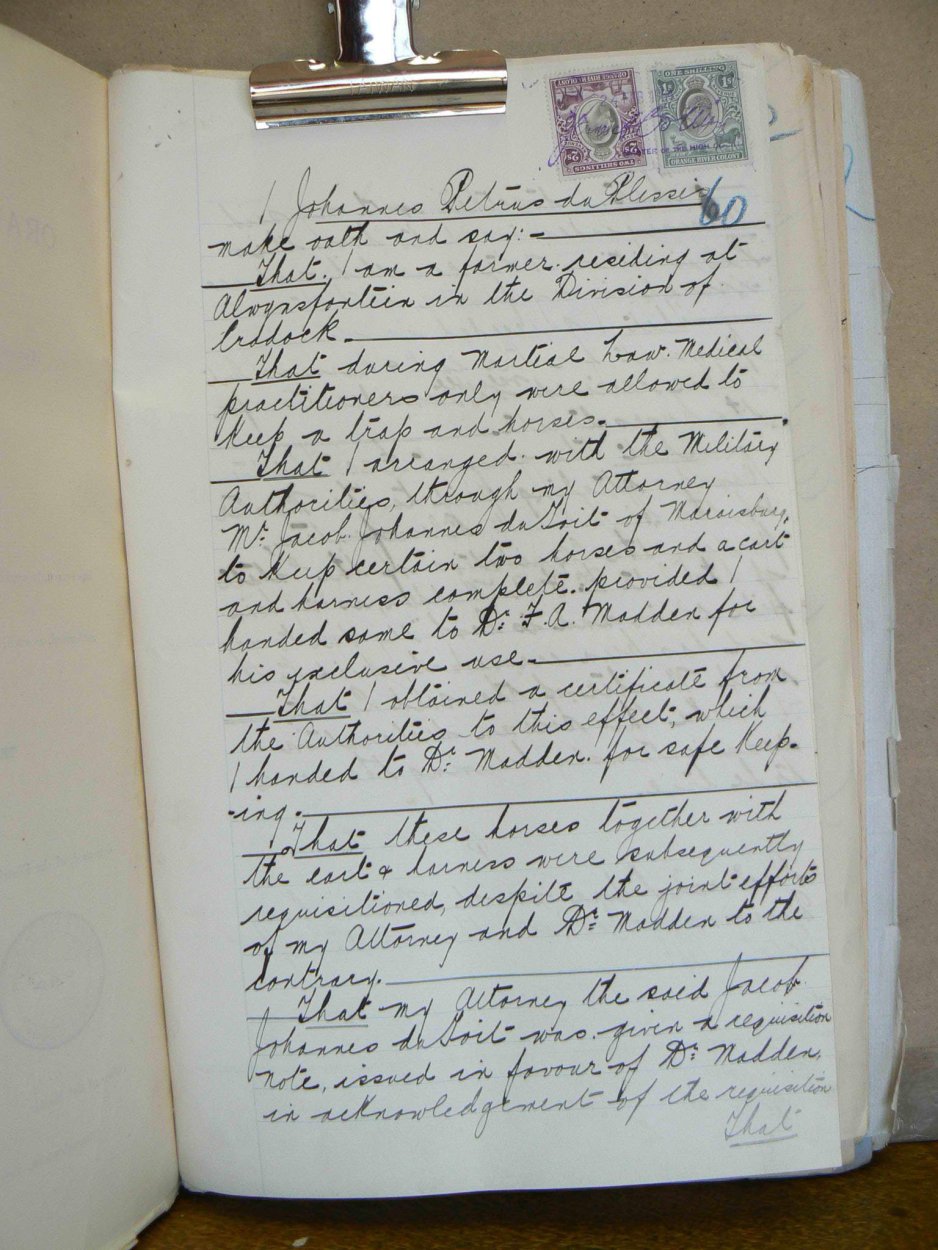 ORANGE RIVER COLONY
2s
TWO SHILLINGS
2s
ONE SHILLING
1s
1s
ORANGE RIVER COLONY
OF THE HIGH
60
I Johannes Petrus du Plessis
make oath and say:-
That. I am a farmer residing at
Alwynsfontein in the Division of
Cradock.
That during Martial Law. Medical
practitioners only were allowed to
keep a trap and horses.
That I arranged with the Military
Authorities, through my Attorney
Mr. Jacob Johannes du Toit of Maraisburg,
to keep certain two horses and a cart
and harness complete. provided I
handed same to Dr. F. A. Madden for
his exclusive use.
That I obtained a certificate from
the Authorities to this effect, which
I handed to Dr. Madden. for safe keep-
-ing.
That these horses together with
the cart & harness were subsequently
requisitioned, despite the joint efforts
of my Attorney and Dr. Madden to the
contrary.
That my Attorney the said Jacob
Johannes du Toit was given a requisition
note, issued in favour of Dr. Madden,
in acknowledgement of the requisition
That